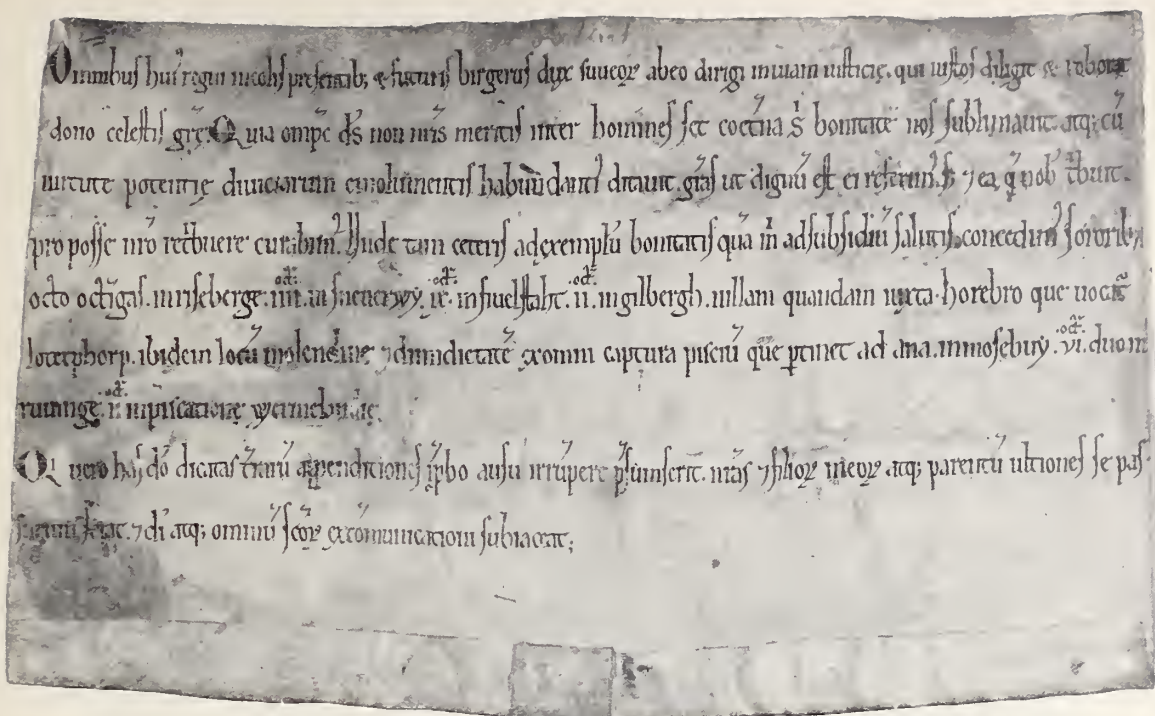 Omnibus huiꝰ regni incolis presentibꝫ ⁊ futuris birgerus dux sueoꝝ ab eo dirigi in uiam iusticię. qui iustos diligit & roborat
dono celestis grę. Quia omps ds non nris meritis inter homines set coetna s bonitate nos sublimauit. atqꝫ cū
uirtute potentię diuiciarum emolumentis habundantꝰ ditauit. gras ut dignū est ei referimꝰ. ⁊ ea q nob tbuit.
pro posse nro retbuere curabimꝰ. Unde tam ceteris ad exemplū bonitatis quā in ad subsidiū salutis. concedimꝰ sororibꝫ
octo octigas. in riseberge. iiii. in sneuerwy. ix. in hiuelstaht. ii. in gilbergh. uillam quandam iuxta horebro que uocat
lotetphorp. ibidem locū molendine ⁊ dimidietatē ex omni captura pisciū que ptinet ad ana. in mosebuy. vi. duo in
ruminge. ii. in piscatione wermebuxię.
Qi uero has do dicatas trarū appenditiones ipbo ausu irrupere psumserit. nras ⁊ filioꝝ meoꝝ atqꝫ parentū ultiones se pas-
surum sciat. ⁊ di atqꝫ omniū scoꝝ excomunicationi subiaceat;